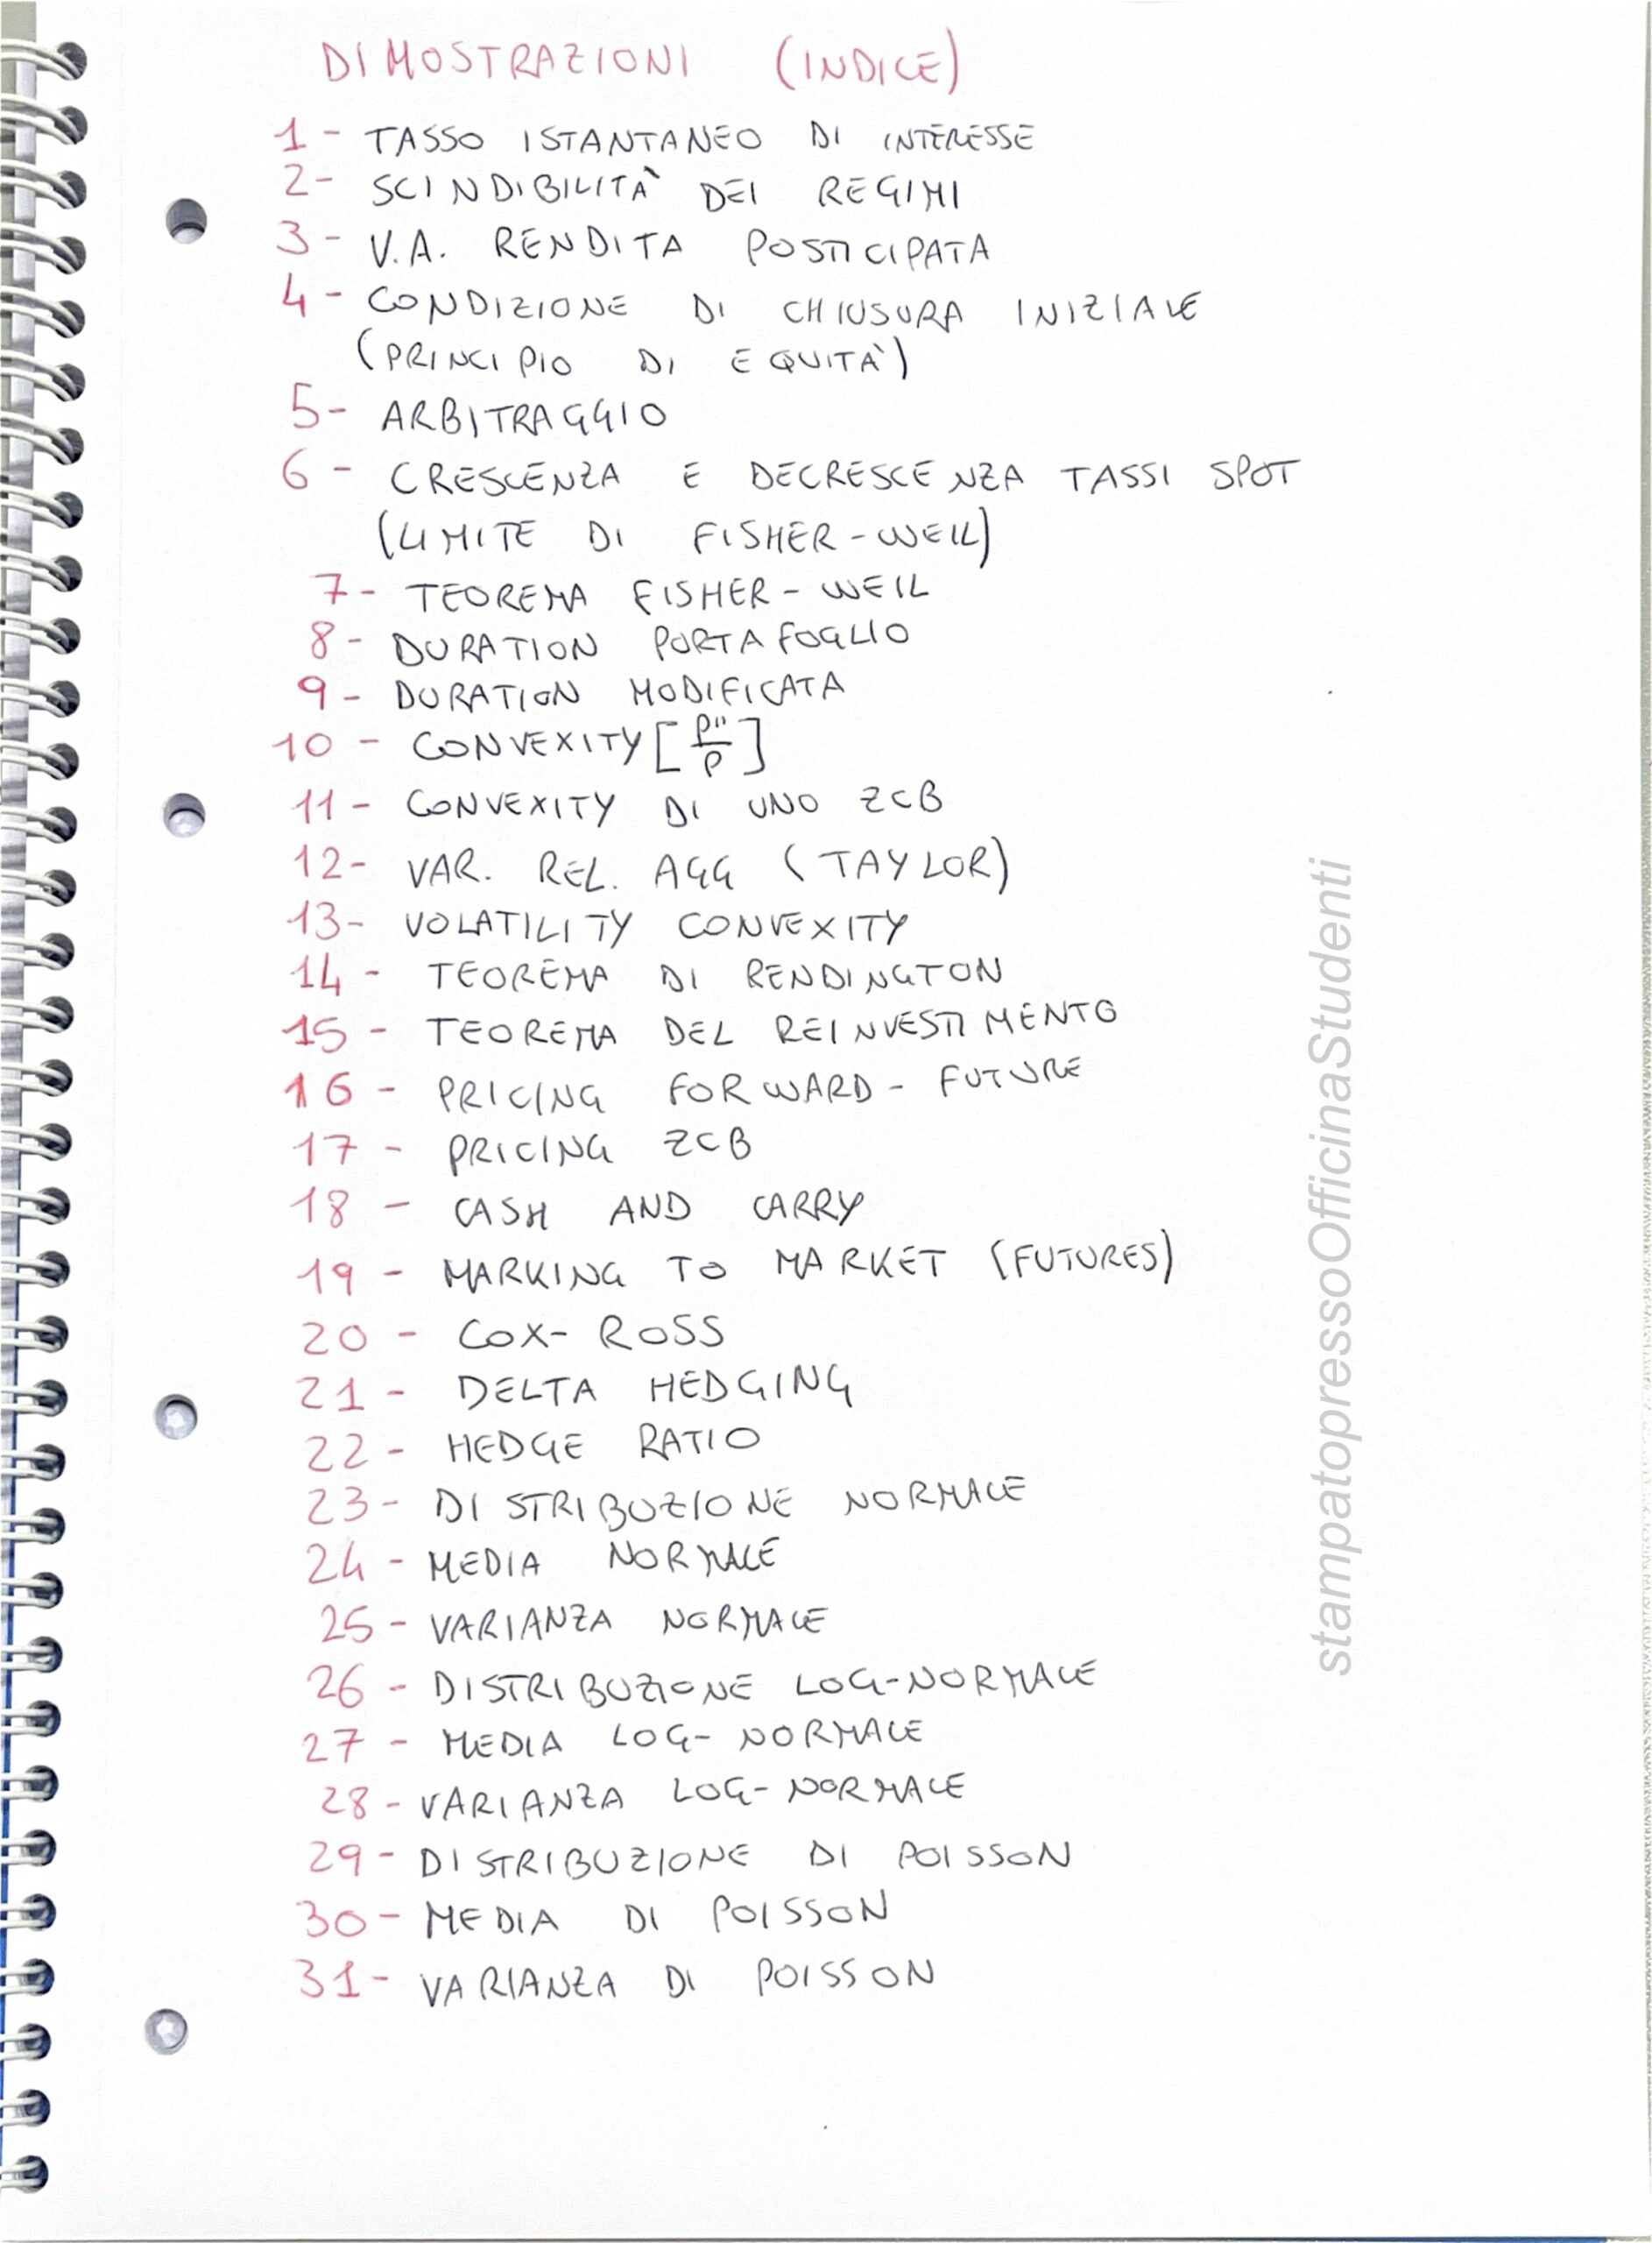 DIMOSTRAZIONI (INDICE)
1 - TASSO ISTANTANEO DI INTERESSE
2 - SCINDIBILITÀ DEI REGIMI
3 - V.A. RENDITA POSTICIPATA
4 - CONDIZIONE DI CHIUSURA INIZIALE
(PRINCIPIO DI EQUITÀ)
5 - ARBITRAGGIO
6 - CRESCENZA E DECRESCENZA TASSI SPOT
(LIMITE DI FISHER - WEIL)
7 - TEOREMA FISHER - WEIL
8 - DURATION PORTAFOGLIO
9 - DURATION MODIFICATA
10 - CONVEXITY [P''/P]
11 - CONVEXITY DI UNO ZCB
12 - VAR. REL. AGG (TAYLOR)
13 - VOLATILITY CONVEXITY
14 - TEOREMA DI RENDINGTON
15 - TEOREMA DEL REINVESTIMENTO
16 - PRICING FORWARD - FUTURE
17 - PRICING ZCB
18 - CASH AND CARRY
19 - MARKING TO MARKET (FUTURES)
20 - COX - ROSS
21 - DELTA HEDGING
22 - HEDGE RATIO
23 - DISTRIBUZIONE NORMALE
24 - MEDIA NORMALE
25 - VARIANZA NORMALE
26 - DISTRIBUZIONE LOG-NORMALE
27 - MEDIA LOG-NORMALE
28 - VARIANZA LOG-NORMALE
29 - DISTRIBUZIONE DI POISSON
30 - MEDIA DI POISSON
31 - VARIANZA DI POISSON
stampatopressoOfficinaStudenti